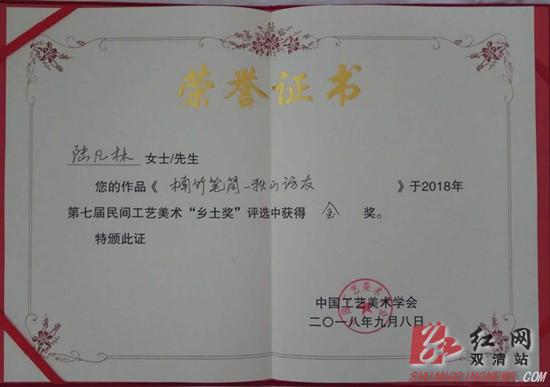 荣誉证书
陆凡林 女士/先生
您的作品《楠竹笔筒-秋山访友》于2018年
第七届民间工艺美术“乡土奖”评选中获得 金 奖。
特颁此证
中国工艺美术学会
二〇一八年九月八日
红网
双清站
SHUANGQINGNEWS.COM